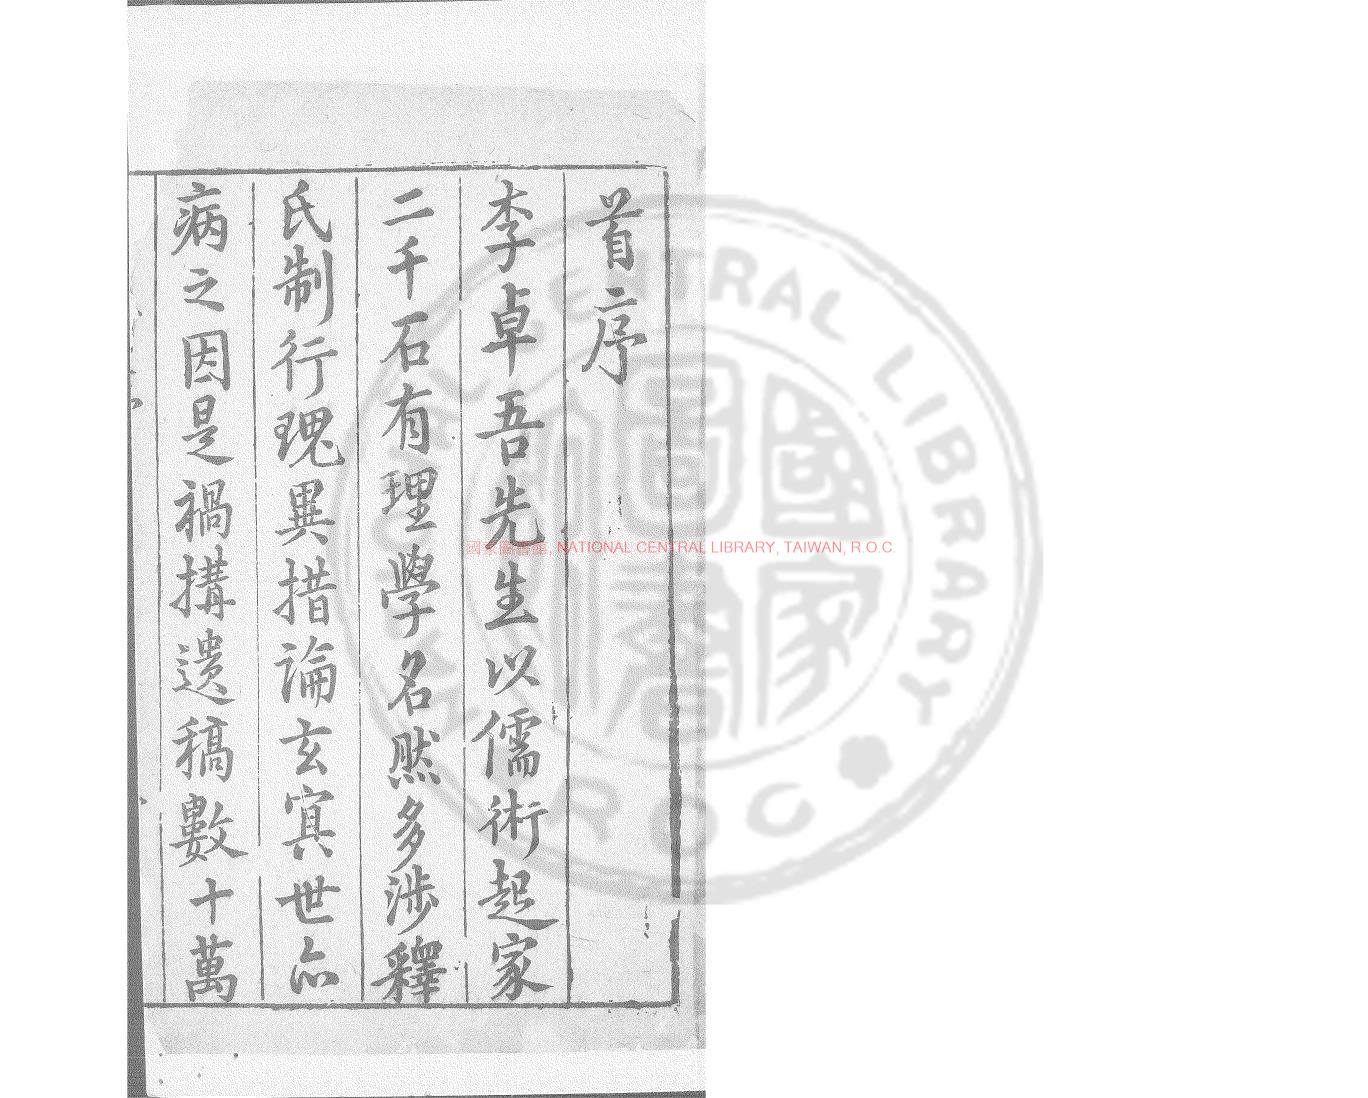 首序
李卓吾先生以儒術起家
二千石有理學名然多涉釋
氏制行瑰異措論玄寘世亦
病之因是禍搆遺稿數十萬
國家圖書館, NATIONAL CENTRAL LIBRARY, TAIWAN, R.O.C.